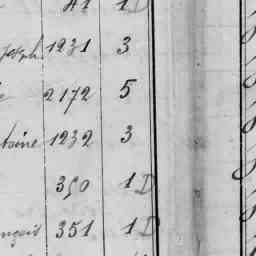 41 1D
Joseph 1231 3
2172 5
toine 1232 3
350 1D
nçois 351 1D